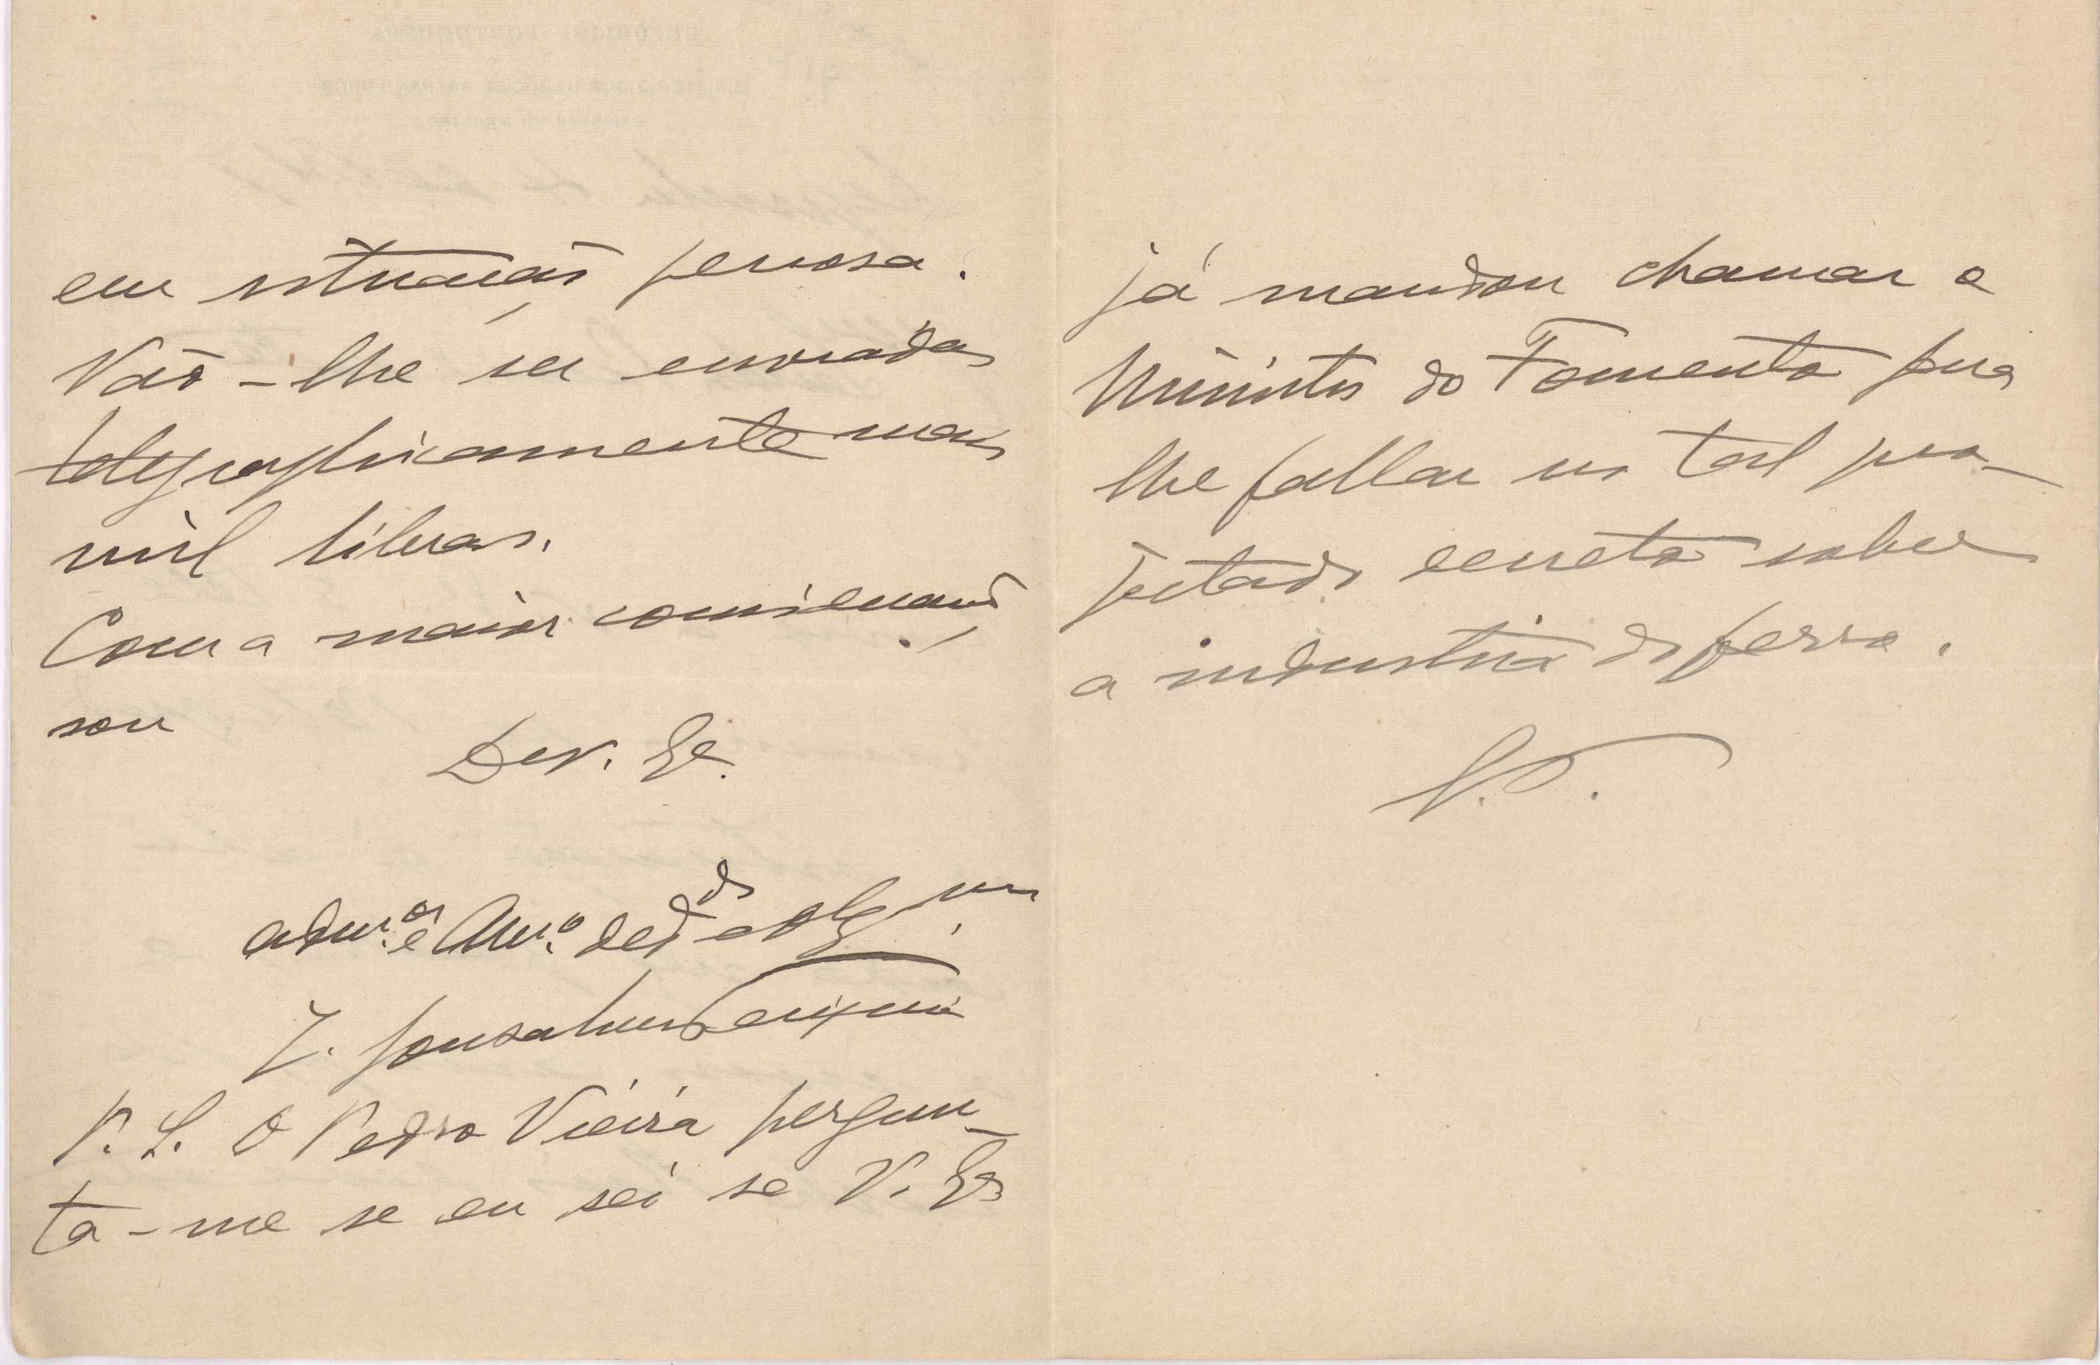 em situação penosa.
Vão-lhe ser enviadas
telegraphicamente mais
mil libras.
Com a maior consideração
sou
De V. Ex.
adm.or e Am.o ded.do e obg.mo
J. Gonsalves Teixeira
P. S. O Pedro Vieira pergun-
ta-me se eu sei se V. Exa
já mandou chamar o
Ministro do Fomento para
lhe fallar no tal pro-
jetado decreto sobre
a industria do ferro.
G. T.